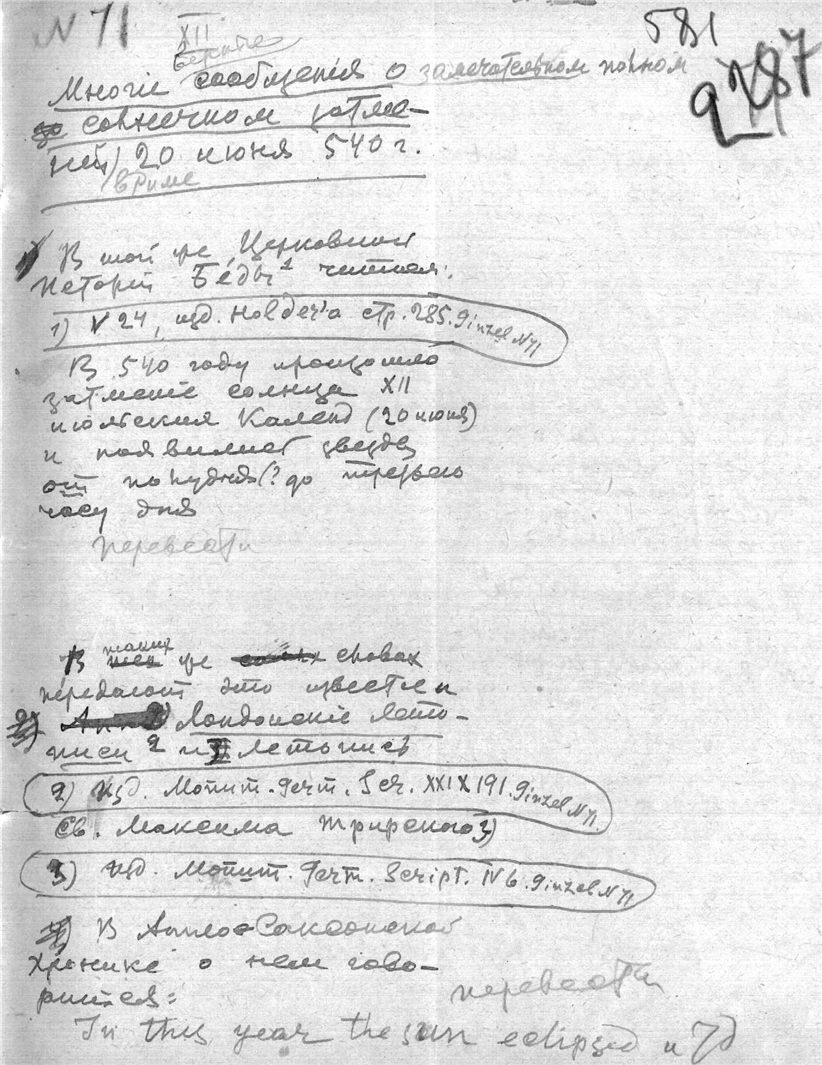 N 71
XII
581
9287
Многіе сообщенія о замечательном полном
солнечном затме-
ніи 20 июня 540 г.
в Риме
В той же Церковной
Исторіи Беды 1 читаем:
1) V 24, изд. Holder'a стр. 285. Ginzel N71
В 540 году произошло
затменіе солнца XII
июльския Календ (20 июня)
и появились звезды
от полудня(? до третьего
часу дня
перевести
В таких же словах
передают это известіе и
2) Лондонскіе Лето-
писи 2 и летопись
2) Изд. Monum. Germ. Scr. XXIX 191. Ginzel N71.
Св. Максима Трирского 3)
3) Изд. Monum. Germ. Script. IV 6. Ginzel N71
В Англо-Саксонской
Хронике о нем гово-
рится:
перевести
In this year the sun eclipsed и Тд